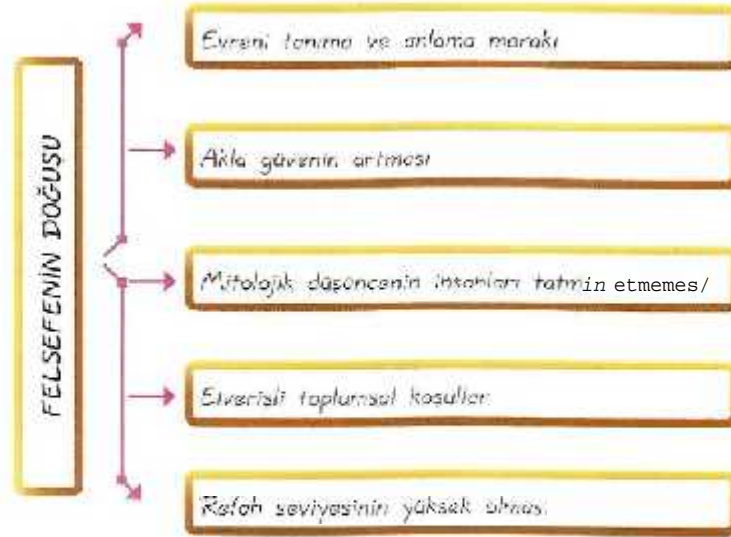 FELSEFENİN DOĞUŞU
Evreni tanıma ve anlama merakı
Akla güvenin artması
Mitolojik düşüncenin insanları tatmin etmemes/
Elverişli toplumsal koşullar
Refah seviyesinin yüksek olması